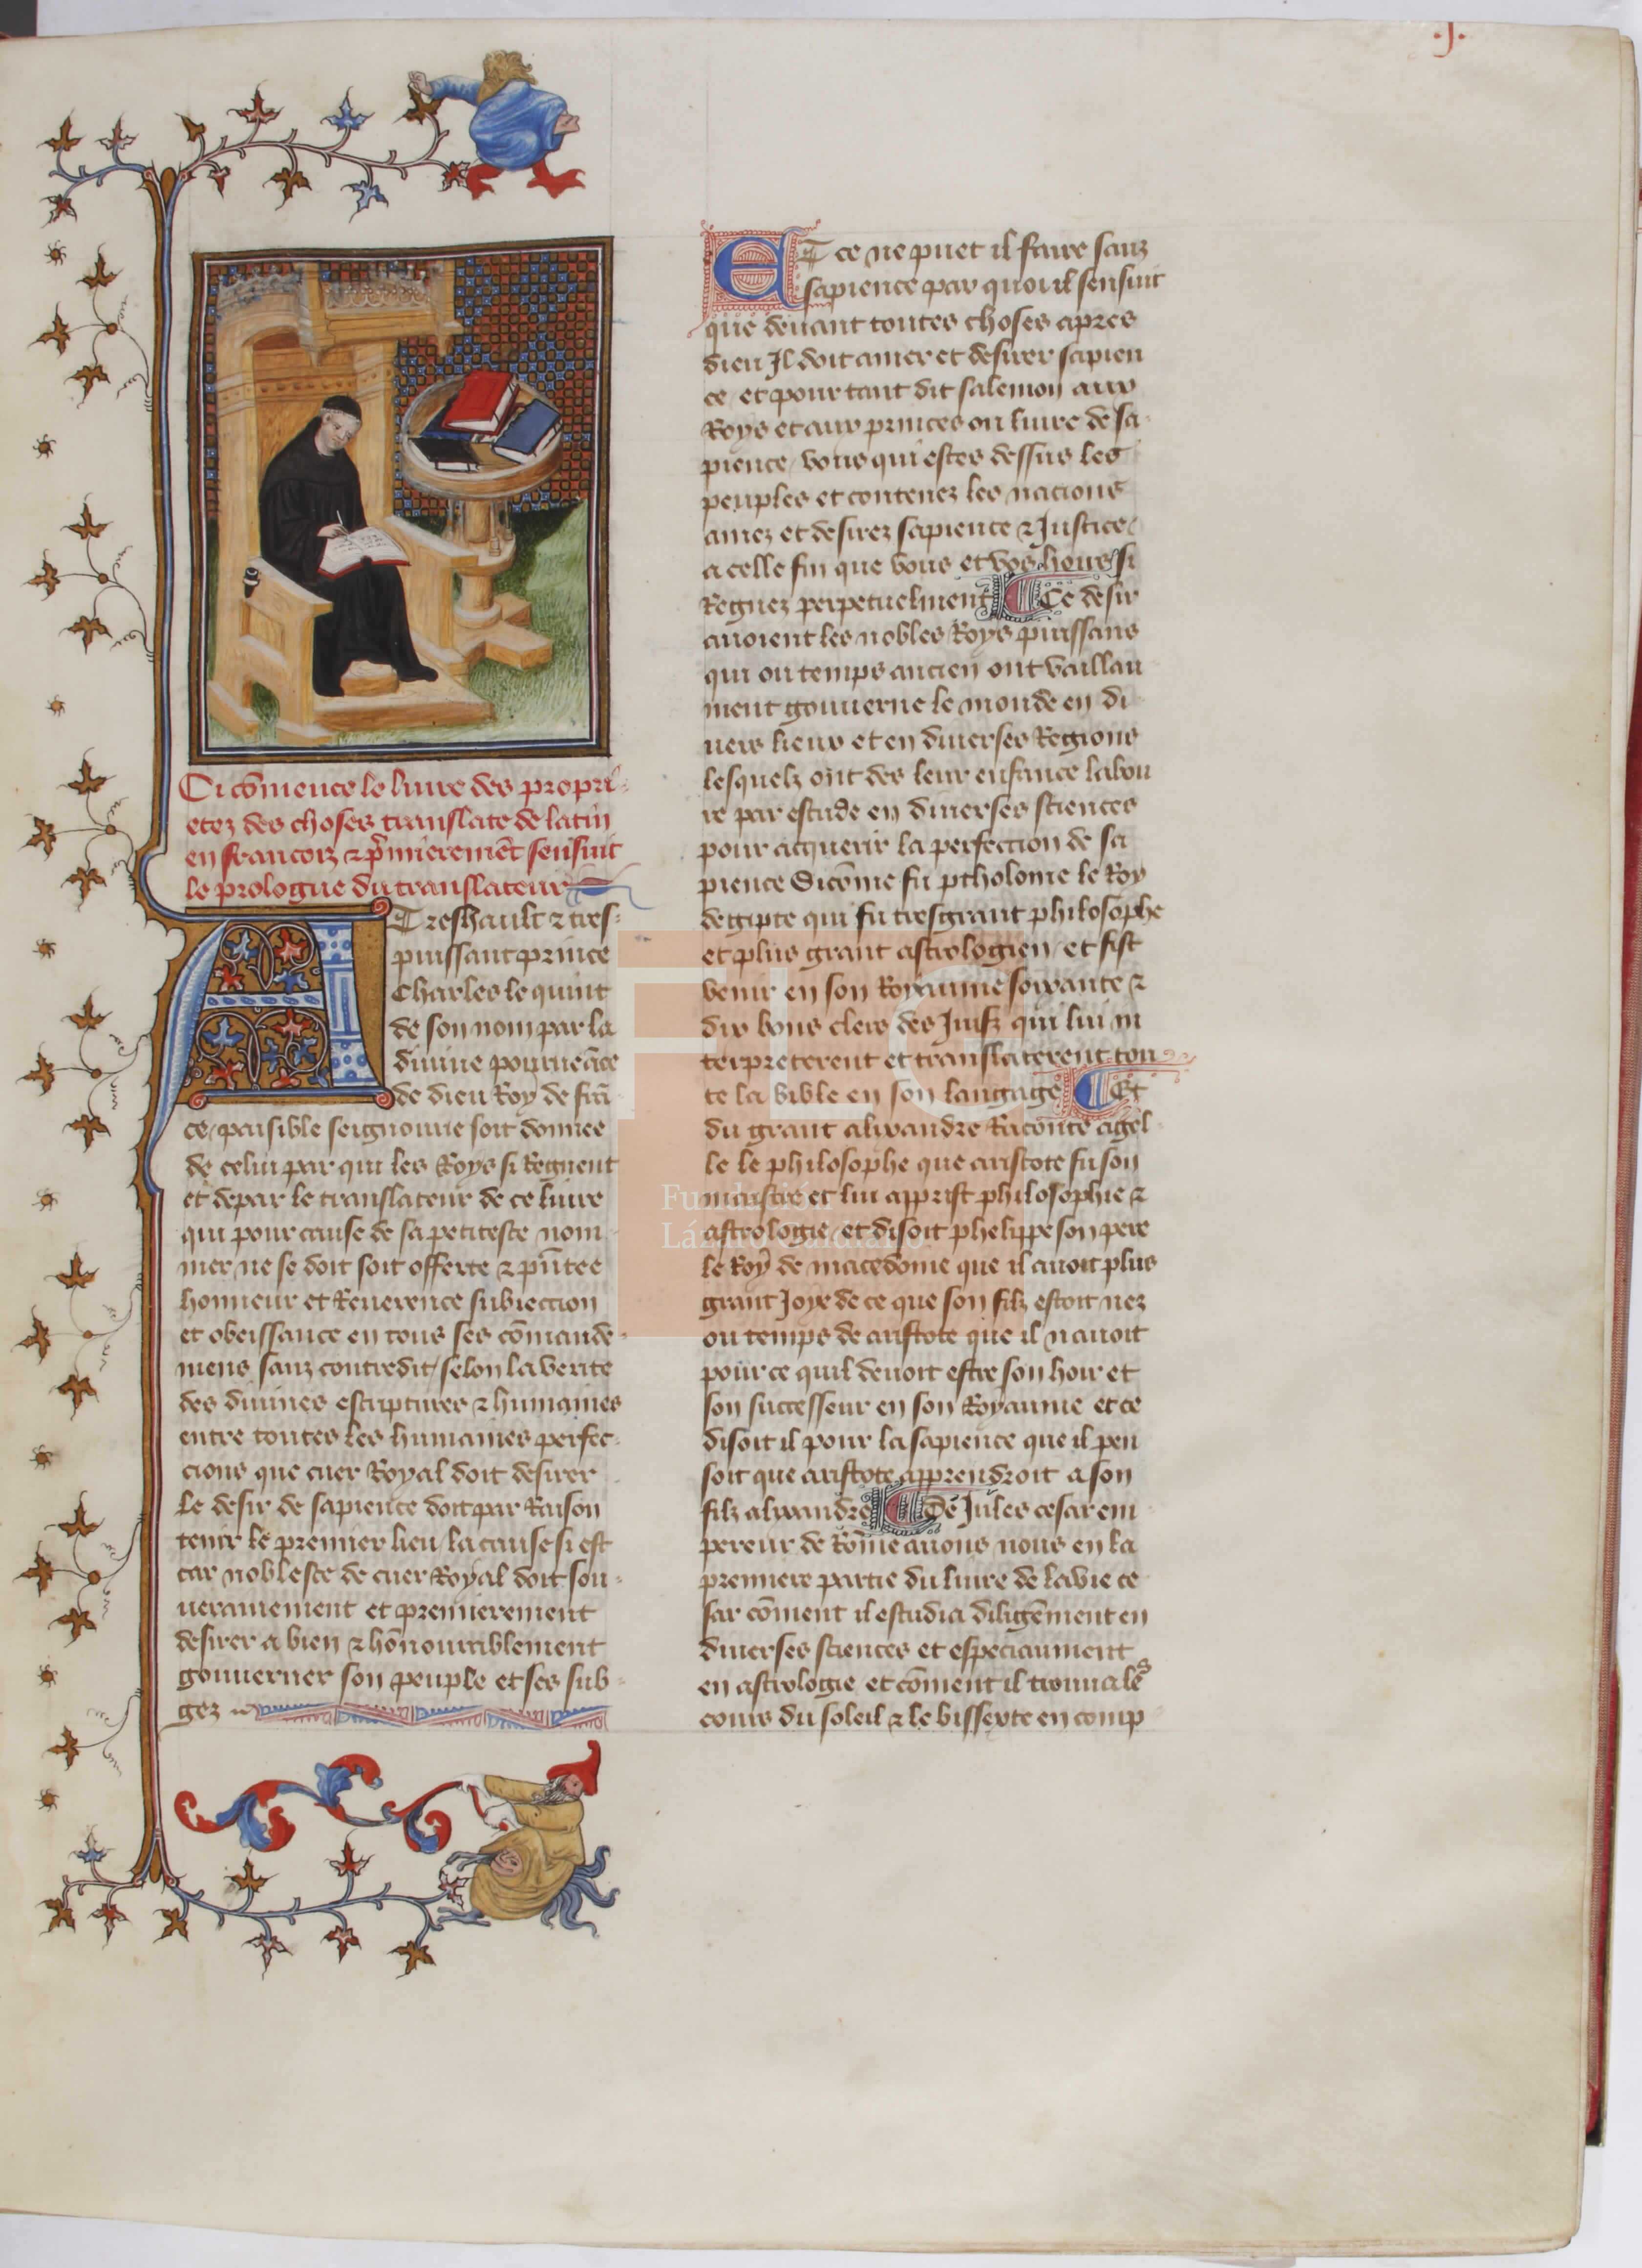 .j.
Ci cõmence le liure des propri-
etez des choses translate de latin
en francois ⁊ p̃mieremẽt sensuit
le prologue du translateur
A Treshault ⁊ tres-
puissant prince
Charles le quint
de son nom par la
diuine pourueãce
de dieu Roy de frã
ce paisible seignourie soit donnee
de celui par qui les Roys si Regnent
et de par le translateur de ce liure
qui pour cause de sa petitesce nom
mer ne se doit soit offerte ⁊ p̃ntee
honneur et Reuerence subiection
et obeissance en tous ses cõmande-
mens sanz contredit selon la verite
des diuines escriptures ⁊ humaines
entre toutes les humaines perfec-
cions que cuer Royal doit desirer
le desir de sapience doit par Raison
tenir le premier lieu / la cause si est
car noblesce de cuer Royal doit sou-
uerainement et premierement
desirer a bien ⁊ hõnourablement
gouuerner son peuple et ses sub-
gez
ET ce ne puet il faire sanz
sapience par quoi il sensuit
que deuant toutes choses apres
dieu Il doit amer et desirer sapien
ce et pour tant dit salemon aux
Roys et aux princes ou liure de sa-
pience / vous qui estes dessus les
peuples et contenez les nacions
amez et desirez sapience ⁊ Justice
a celle fin que vous et vos hoirs si
Regnez perpetuelment Ce desir
auoient les nobles Roys puissans
qui ou temps ancien ont vaillan
ment gouuerne le monde en di-
uers lieux et en diuerses Regions
lesquelz ont des leur enfance labou
re par estude en diuerses sciences
pour acquerir la perfection de sa
pience Sicõme fu ptholome le Roy
degipte qui fu tresgrant philosophe
et plus grant astrologien / et fist
venir en son Royaume soixante ⁊
dix bons clers des Juifz qui lui in
terpreterent et translaterent tou
te la bible en son langage Et
du grant alixandre Raconte agel-
le le philosophe que aristote fu son
maistre et lui apprist philosophie ⁊
astrologie / et disoit phelippe son pere
le Roy de macedoine que il auoit plus
grant Joye de ce que son filz estoit nez
ou temps de aristote que il nauoit
pour ce quil deuoit estre son hoir et
son successeur en son Royaume et ce
disoit il pour la sapience que il pen
soit que aristote apprendroit a son
filz alixandre De Jules cesar em
pereur de Rõme auons nous en la
premiere partie du liure de la vie ce
sar cõment il estudia diligẽment en
diuerses sciences et especiaument
en astrologie et cõment il trouua les
cours du soleil ⁊ le bissexte en comp
FLG
Fundación
Lázaro Galdiano